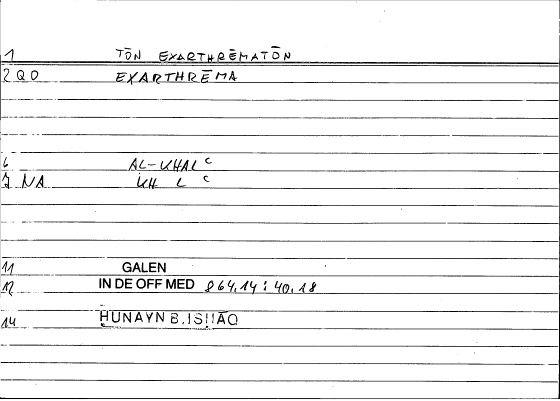 1 TŌN EXARTHRĒMATŌN
2 QO EXARTHRĒMA
6 AL-KHALC
7 NA KH L C
11 GALEN
12 IN DE OFF MED 864.14 : 40.18
14 ḤUNAYN B. ISḤĀQ